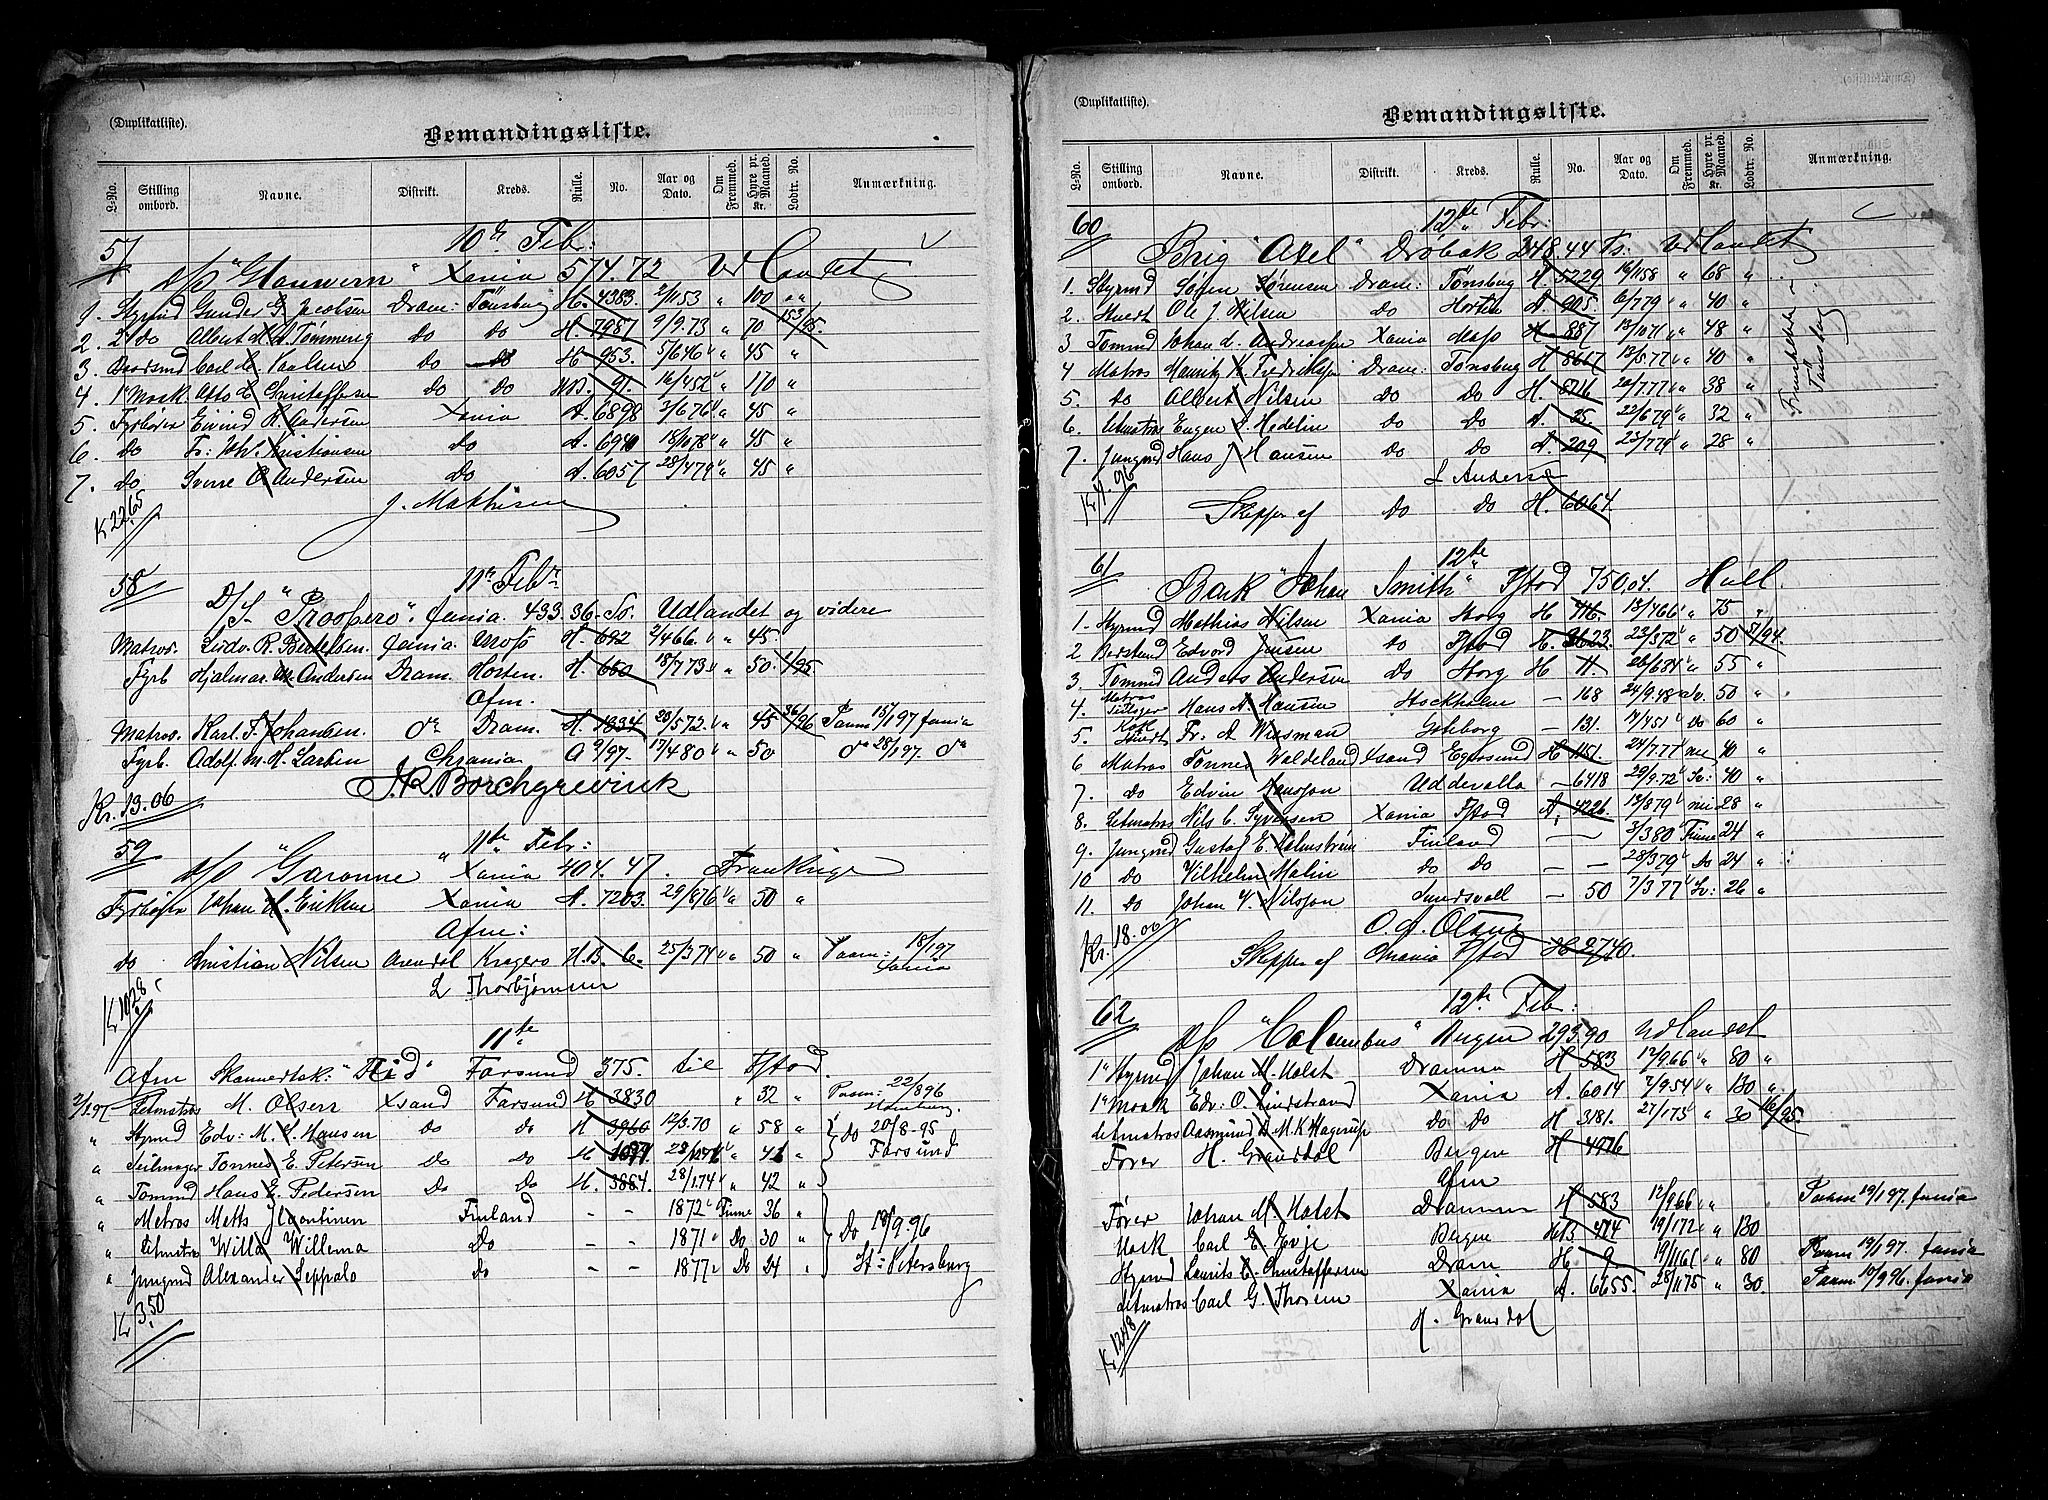 (Duplikatliste).
Bemandingsliste.
L-No. Stilling ombord. Navne. Distrikt. Kreds. Rulle. No. Aar og Dato. Om Fremmed. Hyre pr. Maaned. Kr. Lodtr. No. Anmærkning.
57 10de Febr:
Xania 574.72 Udlandet
1. Styrmd Gunder G. Jacobsen Dram: Tönsbug H. 4383. 2/1153 " 100 "
2. 2 do Albert M. A Tømmerig do do H 7987 9/9.73 " 70 153/95.
3. Carl C. Paulsen do do H. 953. 5/646 " 45 "
4. 1' Mask. Otto C Christoffersen do do 91. 16/452 " 170 "
5. Fyrbøder Eivind R. Andersen Xania A. 6898 3/676 " 45 "
6. do Fr: Joh. Kristiansen do A. 6940 18/1078 " 45 "
7. do Sverre O. Andersen do A. 6057 28/479 " 45 "
Kr 22.65 J. Mathisen
58 11te Febr
D/S "Prospero". Xania. 433.36. To. Udlandet og videre
Matros. Ludv. R. Bertelsen. Xania. Moss H. 692 2/466 " 45.
Fyrb Hjalmar M. Andersen Dram. Horten. H. 660 18/773 " 50. 1/95
Afm.
Matros. Karl. F. Johansen. do Dram. H. 1334 28/572 " 45 36/96 Paam 15/197 Xania
Fyrb. Adolf. M. H. Larsen Chrania A 9/97. 17/480 " 50 do 28/197. do
Kr. 13.06 J. R. Borchgrevink
59 11te Febr:
s/s "Garonne Xania 404.47. Frankrige
Fyrbøder Johan H. Eriksen Xania A. 7203. 29/876 " 50 "
Afm:
do Kristian Nilsen Arendal Kragerø H. B. 6. 25/374 " 50 " Paam: 18/197 Xania
Kr 10.28 L Thorbjørnsen
11te
Afm Skonnertsk: "Did" Farsund 375. til Fstad.
2/197 Letmatros M. Olsen Xsand Farsund H 3830 " 32 " Paam: 22/896 Hamburg.
" Styrmd Edv: M. S. Hansen do do H 3960 12/3.70 " 58 " do 20/8-95 Farsund
" Seilmager Tonnes E. Petersen do do H. 28/1246 " 42 "
" Tømmd Hans E. Pedersen do do H. 3884. 28/174 " 42 "
" Matros Matts J. Finland - - 1872 Finne 36 " Do 10/9.96 St. Petersburg
" Letmatros Willa Willema Do - - 1871 Do 30 "
" Jungmd Alexander Seppalo do - - 1877 Do 24 "
Kr 3.50
(Duplikatliste).
Bemandingsliste.
L-No. Stilling ombord. Navne. Distrikt. Kreds. Rulle. No. Aar og Dato. Om Fremmed. Hyre pr. Maaned. Kr. Lodtr. No. Anmærkning.
60 12te Febr:
Brig "Axel" Drøbak 248.44 Ts. Udlandet
1. Styrmd Søren Sørensen Dram: Tønsbug H. 5229 16/1158 " 68 "
2. Stuert Ole J. Nilsen do Horten A. 905. 6/779 " 40 "
3 Tømmd Johan L. Andreassen Xania Moss H 887 13/1071 " 48 "
4 Matros Mauritz K. Fredriksen Dram: Tønsbug H 8667 13/577 " 40 "
5. do Albert Nilsen do do H. 8716 20/777 " 38 "
6. Letmatros Eugen A. Hedelin do do A. 25. 22/679 " 32 "
7. Jungmd Hans J. Hansen do do A 209 23/779 " 28 "
Frederikke Tønsberg
L Andersen
Skipper af do do H. 6064.
61 12te
Bark "Johan Smith" Fstad 750,04. Hull.
1. Styrmd Mathias Nilsen Xania Sarg H 18/466 " 75 "
2 Edvard Jensen do Fstad H. 3623. 23/372 " 50 7/94
3. Tømmd Anders Andersen do Sarg H 11. 26/684 " 55 "
4. Matros Seilager Hans A. Hansen Stockholm - 168 24/948 Sv. 50 "
5. Kok Stuert Fr. A Wiesman Goteborg - 131. 14/451 Do 60 "
6 Matros Tonnes Waldeland Xsand Egersund H 1151. 24/777 nei 40 "
7. do Edvin Uddevalla - 6418 29/9.72 Sv: 40 "
8. Letmatros Nils C. Syversen Xania Fstad A. 4226. 13/879 nei 28 "
9. Jungmd Gustaf E. Holmström Finland - - 3/380 Finne 24 "
10 do Wilhelm Malin do do - - 28/379 Do 24 "
11. do Johan V. Nilsson Sundsvall - 50 7/377 Sv: 26 "
Kr. 18.00 O. A. Olsen
Skipper af Chrania Fstad H 2740.
62 12te Febr:
s/s "Columbus" Bergen 293.90 Udlandet
1' Styrmd Johan M. Holst Drammen H 583 12/966 " 80 "
1' Mask Edv: O. Lindstrand Xania A. 6014 7/9.54 " 130 "
Letmatros Aasmund B. M. K. Hagerup do do H 3181. 27/173 " 30 16/95.
Fører H. Grandal Bergen H 4976
Afm
Fører Johan M. Holst Drammen H 583 12/966 " Paam 19/197. Xania
Mask Carl E. Evje Bergen HB 474 19/172 " 130
Styrmd Laurits C. Christoffersen Dram H 9 19/1161 " 80 Paam 19/197. Xania
Letmatros Carl G. Thoresen Xania A. 6655. 28/1175 " 30 Paam 10/996. Xania
Kr 12.48 H. Grandal